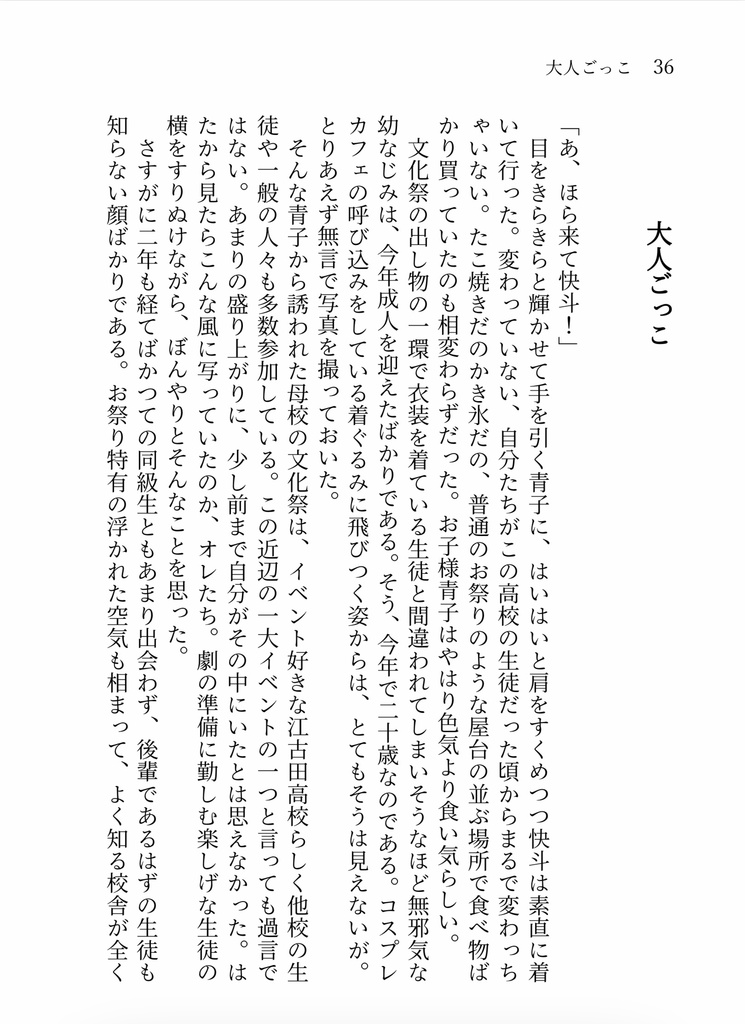 大人ごっこ 36
大人ごっこ
「あ、ほら来て快斗!」
目をきらきらと輝かせて手を引く青子に、はいはいと肩をすくめつつ快斗は素直に着
いて行った。変わっていない、自分たちがこの高校の生徒だった頃からまるで変わっち
ゃいない。たこ焼きだのかき氷だの、普通のお祭りのような屋台の並ぶ場所で食べ物ば
かり買っていたのも相変わらずだった。お子様青子はやはり色気より食い気らしい。
文化祭の出し物の一環で衣装を着ている生徒と間違われてしまいそうなほど無邪気な
幼なじみは、今年成人を迎えたばかりである。そう、今年で二十歳なのである。コスプレ
カフェの呼び込みをしている着ぐるみに飛びつく姿からは、とてもそうは見えないが。
とりあえず無言で写真を撮っておいた。
そんな青子から誘われた母校の文化祭は、イベント好きな江古田高校らしく他校の生
徒や一般の人々も多数参加している。この近辺の一大イベントの一つと言っても過言で
はない。あまりの盛り上がりに、少し前まで自分がその中にいたとは思えなかった。は
たから見たらこんな風に写っていたのか、オレたち。劇の準備に勤しむ楽しげな生徒の
横をすりぬけながら、ぼんやりとそんなことを思った。
さすがに二年も経てばかつての同級生ともあまり出会わず、後輩であるはずの生徒も
知らない顔ばかりである。お祭り特有の浮かれた空気も相まって、よく知る校舎が全く